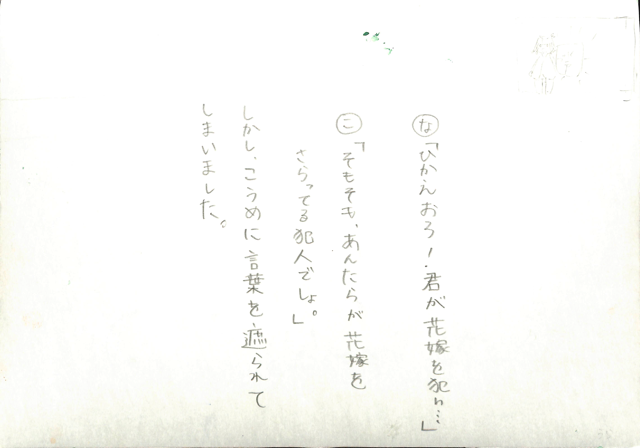 な「ひかえおろー!君が花嫁を犯い…」
こ「そもそも、あんたらが花嫁を
さらってる犯人でしょ。」
しかし、こうめに言葉を遮られて
しまいました。